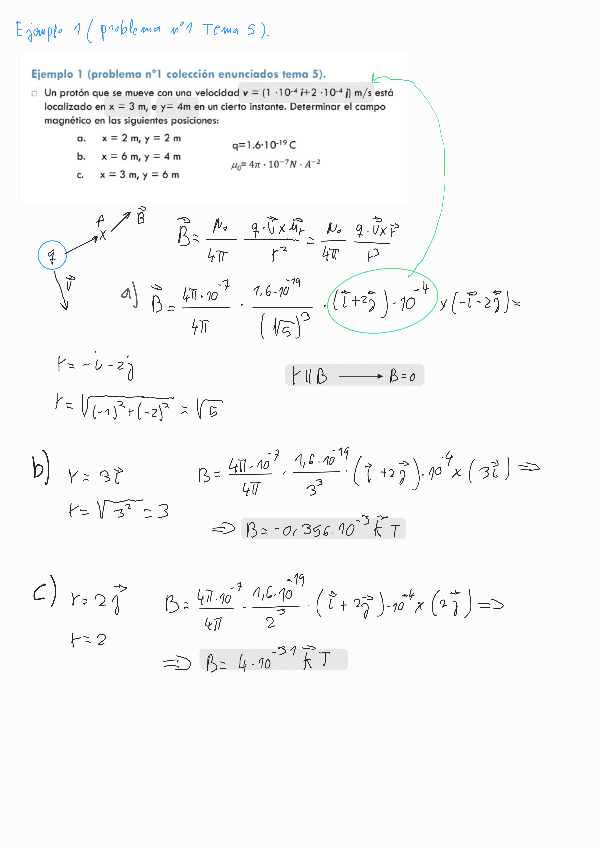 Ejemplo 1 ( problema nº1 Tema 5).
Ejemplo 1 (problema nº1 colección enunciados tema 5).
Un protón que se mueve con una velocidad v = (1 ·10⁻⁴ i+2 ·10⁻⁴ j) m/s está
localizado en x = 3 m, e y= 4m en un cierto instante. Determinar el campo
magnético en las siguientes posiciones:
a. x = 2 m, y = 2 m
b. x = 6 m, y = 4 m
c. x = 3 m, y = 6 m
q=1.6·10⁻¹⁹ C
μ₀= 4π · 10⁻⁷N · A⁻²
P B⃗
X
q
v⃗
B⃗ = μ₀/4π q·v⃗ x u⃗r/r² = μ₀/4π q·v⃗ x r⃗/r³
a) B⃗ = 4π·10⁻⁷/4π · 1,6·10⁻¹⁹/(√5)³ · (i⃗+2j⃗)·10⁻⁴ x (-i⃗-2j⃗)=
r = -i - 2j
r = √((-1)²+(-2)²) = √5
r II B ⟶ B=0
b) r = 3i⃗
r = √3² = 3
B = 4π·10⁻⁷/4π · 1,6·10⁻¹⁹/3³ · (i⃗ +2j⃗)·10⁻⁴ x (3i⃗) ⇒
⇒ B = -0,356·10⁻³ k⃗ T
c) r = 2j⃗
r = 2
B = 4π·10⁻⁷/4π · 1,6·10⁻¹⁹/2³ · (i⃗ + 2j⃗)·10⁻⁴ x (2j⃗) ⇒
⇒ B = 4·10⁻³¹ k⃗ T